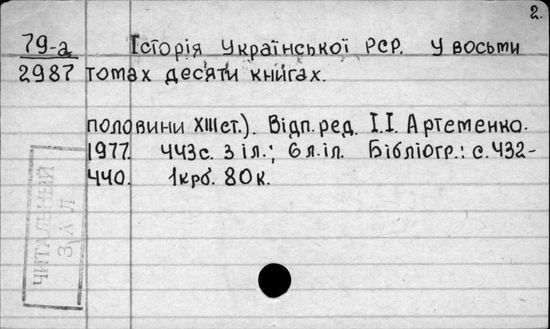 2.
79-а Історія Української РСР. У восьми
2987 томах десяти книгах.
половини XIII ст.). Відп. ред. І.І. Артеменко.
1977. 443 с. з іл.; 6 л. іл. Бібліогр.: с. 432-
440. 1 крб. 80 к.
ЧИТАЛЬНЫЙ
ЗАЛ